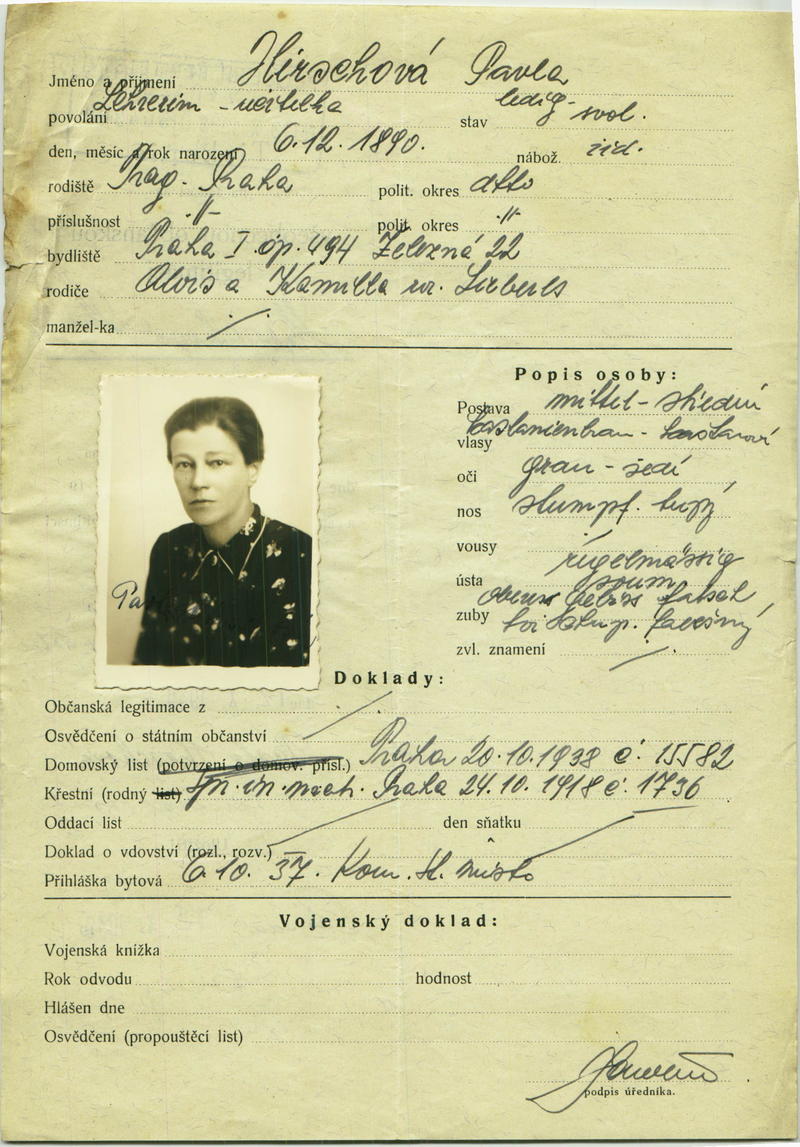 Jméno a příjmení Hirschová Pavla
povolání Lehrerin - učitelka stav ledig - svob.
den, měsíc a rok narození 6.12.1890. nábož. žid.
rodiště Prag - Praha polit. okres dtto
příslušnost -"- polit. okres -"-
bydliště Praha I. čp. 494 Železná 22
rodiče Alois a Kamilla roz.
manžel-ka
Popis osoby:
Postava mittel - střední
vlasy kastanienbraun - kaštanové
oči grau - šedé
nos stumpf. tupý
vousy
ústa regelmässig soum.
zuby oberes Gebiss falsch,
hoř. chrup. falešný
zvl. znamení
Pav
Doklady:
Občanská legitimace z
Osvědčení o státním občanství
Domovský list (potvrzení o domov. přísl.) Praha 20.10.1938 č. 15582
Křestní (rodný list) Praha 24.10.1918 č. 1736
Oddací list den sňatku
Doklad o vdovství (rozl., rozv.)
Přihláška bytová 6.10.37. Kom. St. Město
Vojenský doklad:
Vojenská knížka
Rok odvodu hodnost
Hlášen dne
Osvědčení (propouštěcí list)
podpis úředníka.